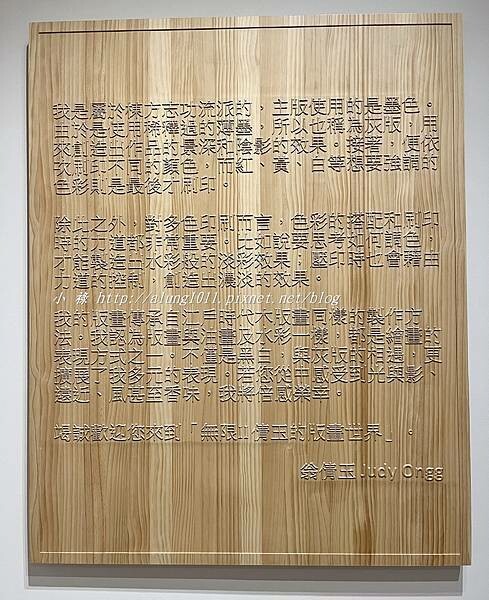 我是屬於棟方志功流派的，主版使用的是墨色。
由於是使用稀釋過的薄墨，所以也稱為灰版，用
來創造出作品的景深和陰影的效果。接著，便依
次刷印不同的顏色，而紅、黃、白等想要強調的
色彩則是最後才刷印。
除此之外，對多色印刷而言，色彩的搭配和刷印
時的力道都非常重要。比如說要思考如何調色，
才能製造出水彩般的淡彩效果，壓印時也會藉由
力道的控制，創造出濃淡的效果。
小祿 http://alung1011.pixnet.net/blog
我的版畫傳承自江戶時代木版畫同樣的製作方
法。我認為版畫與油畫及水彩一樣，都是繪畫的
表現方式之一。不論是黑白、與灰版的相遇，更
擴展了我多元的表現。若您從中感受到光與影、
遠近、風甚至香味，我將倍感榮幸。
竭誠歡迎您來到「無限II 倩玉的版畫世界」。
翁倩玉 Judy Ongg